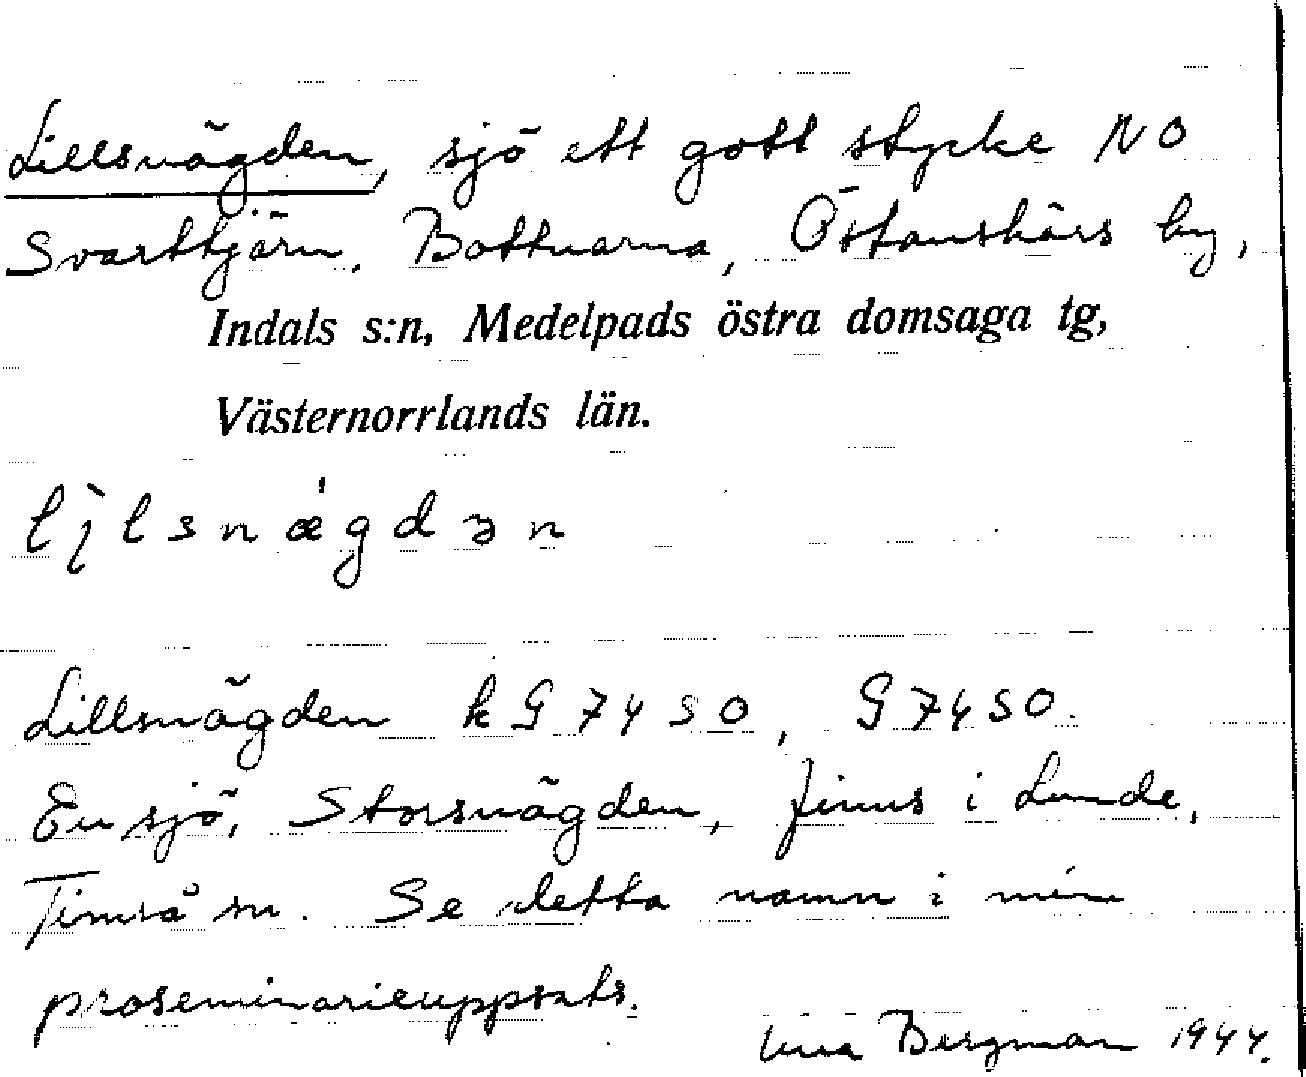 Lillsnägden, sjö ett gott stycke NO
Svarttjärn, Bottnarna, Östanskärs by,
Indals s:n, Medelpads östra domsaga tg,
Västernorrlands län.
Lillsnägden kG 7450, G 7450.
En sjö, Storsnägden, finns i Lunde,
Timrå sn. Se detta namn i min
proseminarieuppsats.
Bergman 1944.